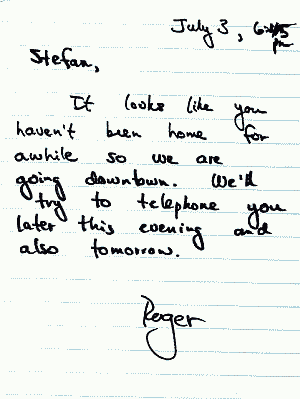 July 3, 6:45 pm
Stefan,
It looks like you
haven't been home for
awhile so we are
going downtown. We'd
try to telephone you
later this evening and
also tomorrow.
Roger